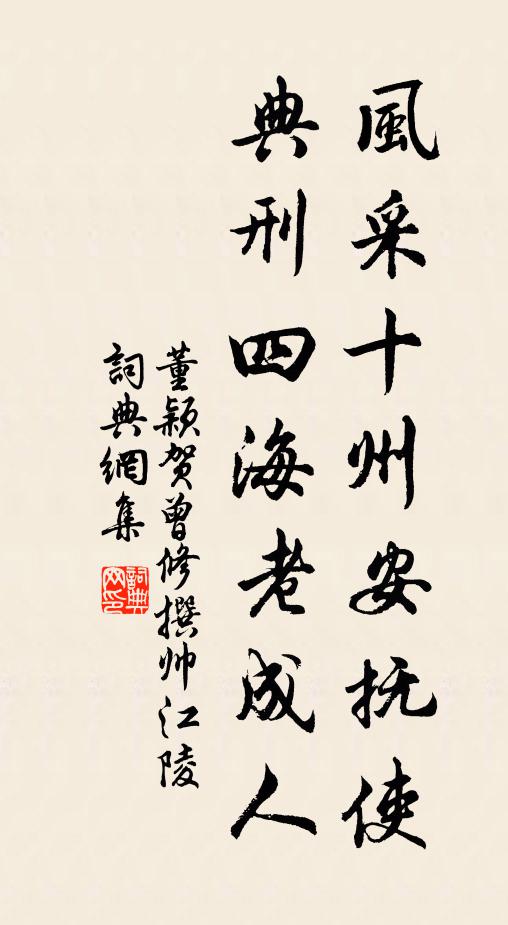 風采十州安抚使
典刑四海老成人
董颖贺曾修撰帅江陵
詞典網集
詞典
网印